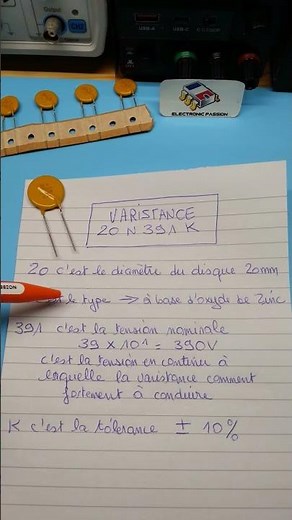 USB-A
ELECTRONIC PASSION
VARISTANCE
20 N 391 K
20 c'est le diamètre du disque 20mm
SSION
le type → à base d'oxyde be Zinc
391 c'est la tension nominale
39 x 10¹ = 390V
c'est la tension en continu à
laquelle la varistance comment
fortement à conduire
K c'est la tolérance ± 10%